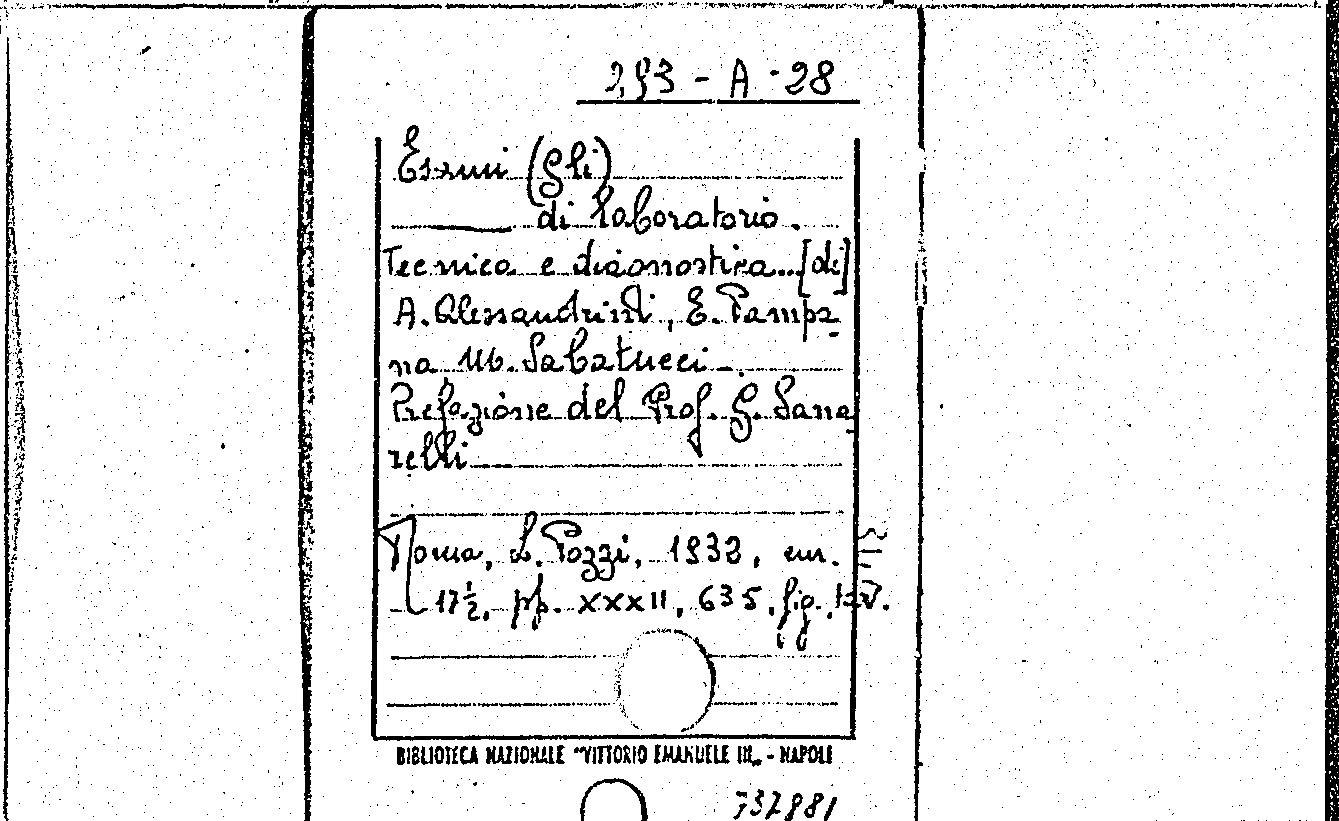 293 - A - 28
Esami (Gli)
di laboratorio.
Tecnica e diagnostica...[di]
A. Alessandrini, E. Pampa-
na M. Sabatucci -.
Prefazione del Prof. G. Sana-
relli
Roma, L. Pozzi, 1932, cm.
17½, pp. XXXII, 635, fig.
BIBLIOTECA NAZIONALE "VITTORIO EMANUELE III„ - NAPOLI
737881